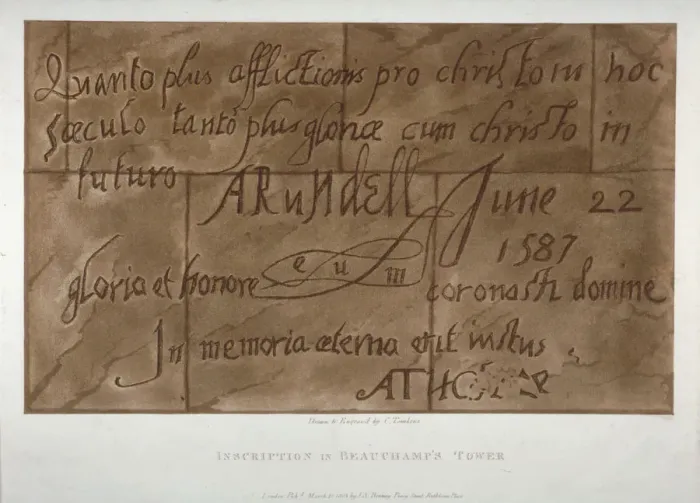 Quanto plus afflictionis pro christo in hoc
sæculo tanto plus gloriæ cum christo in
futuro ARUNDELL June 22
1587
gloria et honore eum coronasti domine
In memoria æterna erit iustus
ATHO
Drawn & Engraved by C. Tomkins
INSCRIPTION IN BEAUCHAMP'S TOWER
London Pub.